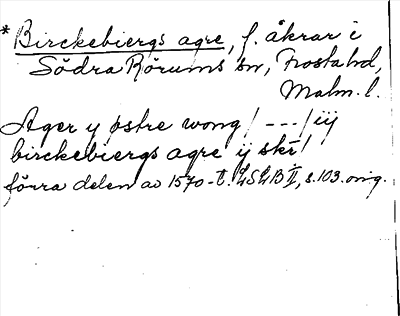 * Birckebiergs agre, f. åkrar i
Södra Rörums sn, Frosta hd,
Malm. l.
Ager y østre wong / --- / iij
birckebiergs agre ij skr /
förra delen av 1570-t. LSLB II, s. 103. orig.